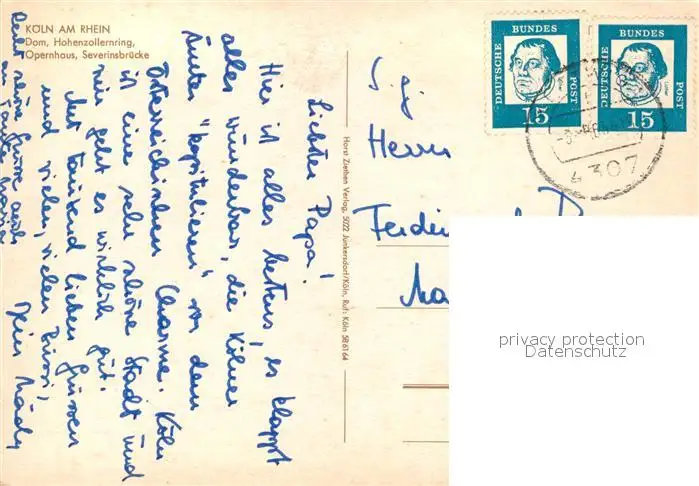 KÖLN AM RHEIN
Dom, Hohenzollernring,
Opernhaus, Severinsbrücke
Liebster Papa!
Hier ist alles bestens, es klappt
alles wunderbar, die Kölner
"kapitulieren" vor dem
österreichischen Charme. Köln
ist eine sehr schöne Stadt und
mir geht es wirklich gut.
Mit tausend lieben Grüssen
und vielen, vielen Bussi,
Dein Mädy
schöne Grüsse auch
an Tante
Horst Ziethen Verlag, 5022 Junkersdorf/Köln, Ruf: Köln 586164
DEUTSCHE BUNDES POST
15
DEUTSCHE BUNDES POST
15
4307
Herrn
privacy protection
Datenschutz